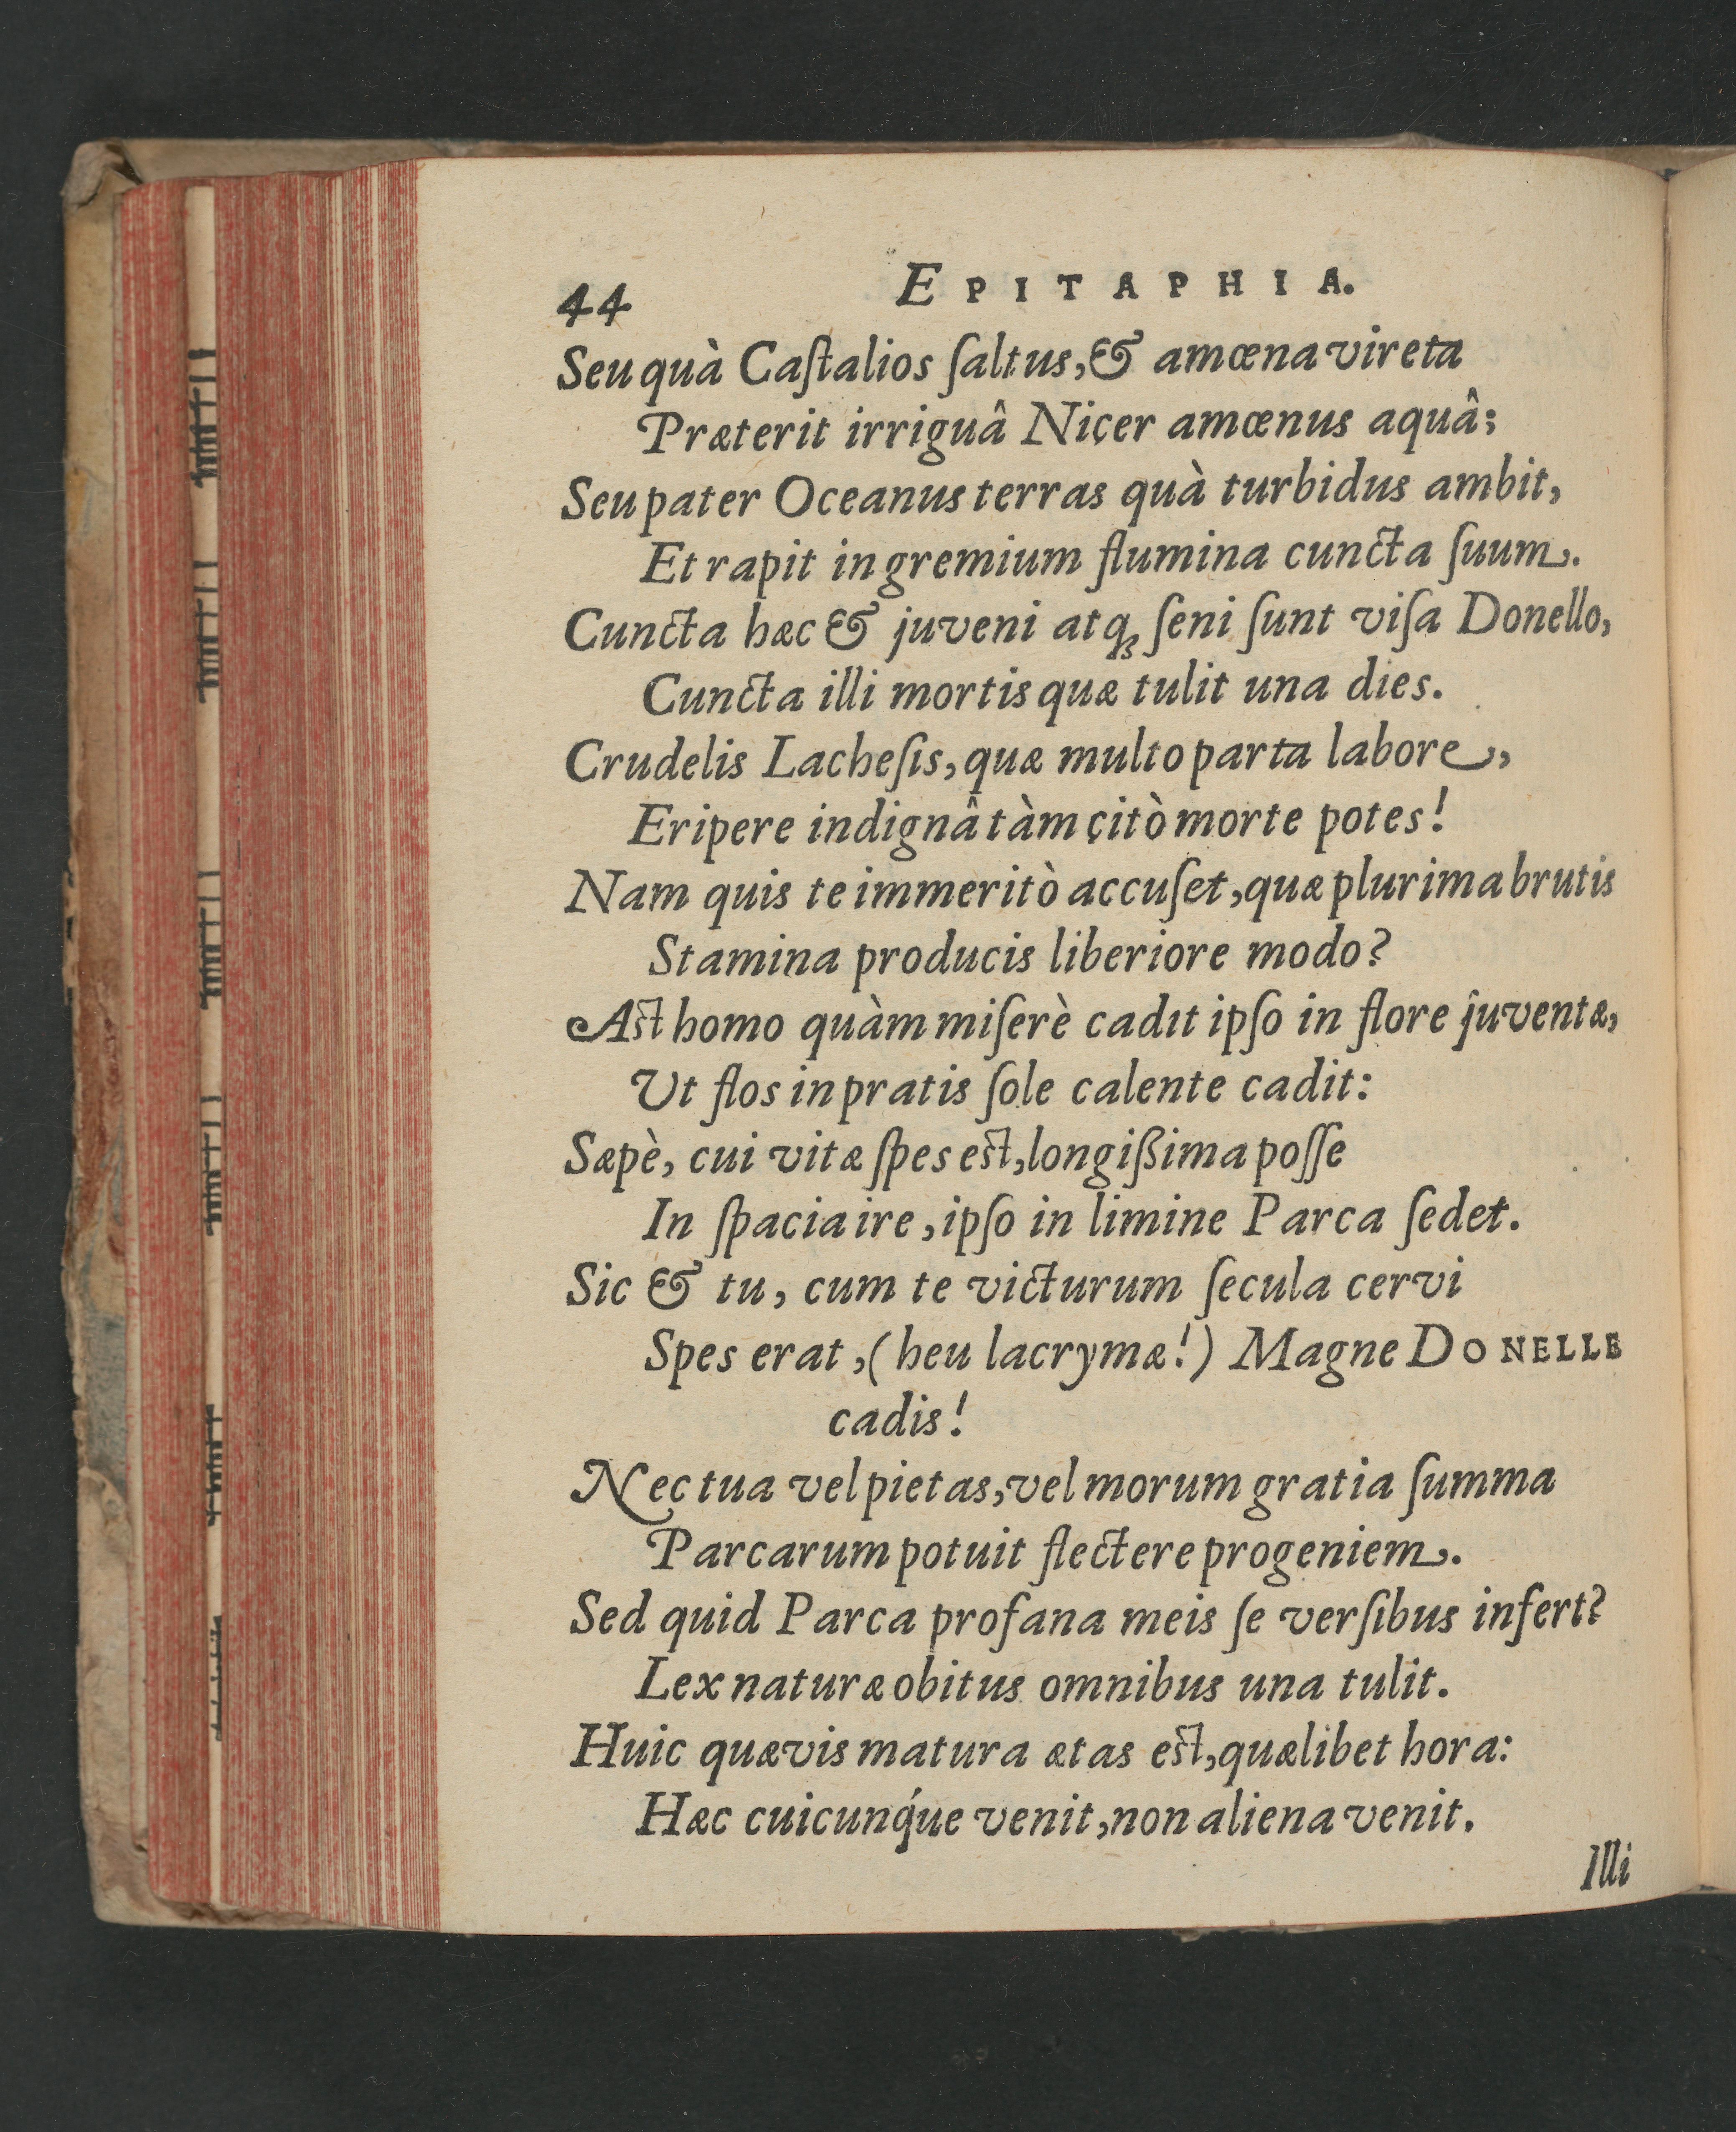 44 EPITAPHIA.
Seu quà Caſtalios ſaltus, & amœna vireta
Præterit irriguâ Niçer amœnus aquâ;
Seu pater Oceanus terras quà turbidus ambit,
Et rapit in gremium flumina cuncta ſuum.
Cuncta hæc & juveni atq; ſeni ſunt viſa Donello,
Cuncta illi mortis quæ tulit una dies.
Crudelis Lacheſis, quæ multo parta labore,
Eripere indignâ tàm çitò morte potes!
Nam quis te immeritò accuſet, quæ plurima brutis
Stamina producis liberiore modo?
Aſt homo quàm miſerè cadıt ipſo in flore juventæ,
Ut flos in pratis ſole calente cadit:
Sæpè, cui vitæ ſpes eſt, longißima poſſe
In ſpacia ire, ipſo in limine Parca ſedet.
Sic & tu, cum te victurum ſecula cervi
Spes erat, (heu lacrymæ!) Magne DONELLE
cadis!
Nec tua vel pietas, vel morum gratia ſumma
Parcarum potuit flectere progeniem.
Sed quid Parca profana meis ſe verſibus infert?
Lex naturæ obitus omnibus una tulit.
Huic quævis matura ætas eſt, quælibet hora:
Hæc cuicunq́ue venit, non aliena venit.
Illi